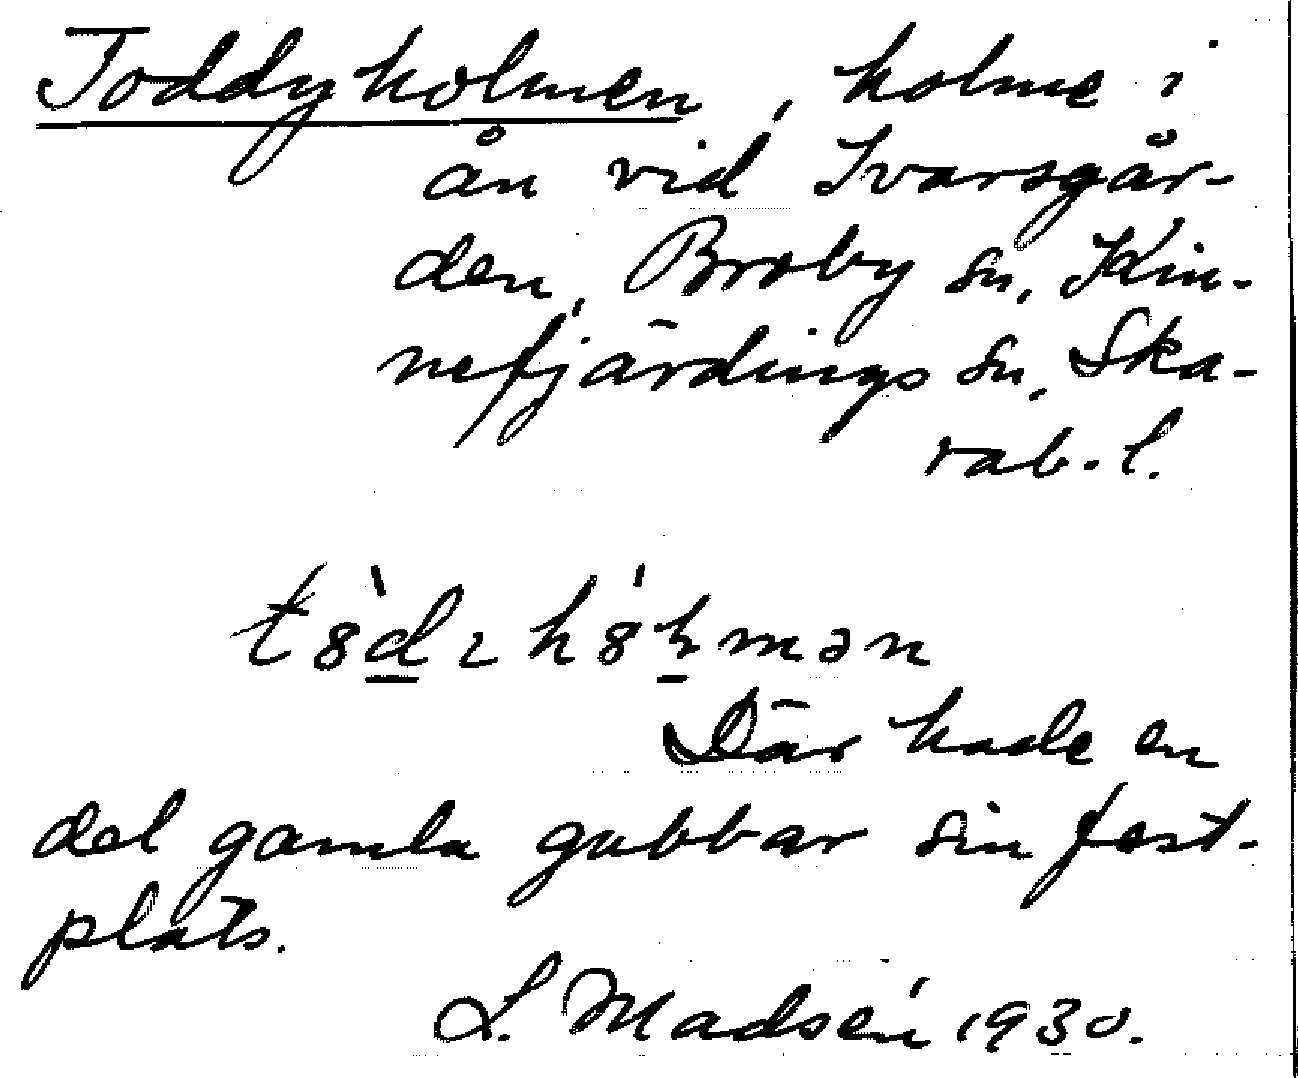 Toddyholmen, holme i
ån vid Ivarsgår-
den, Broby sn, Kin-
nefjärdings sn, Ska-
rab. l.
Där hade en
del gamla gubbar sin fest-
plats.
L. Madsén 1930.